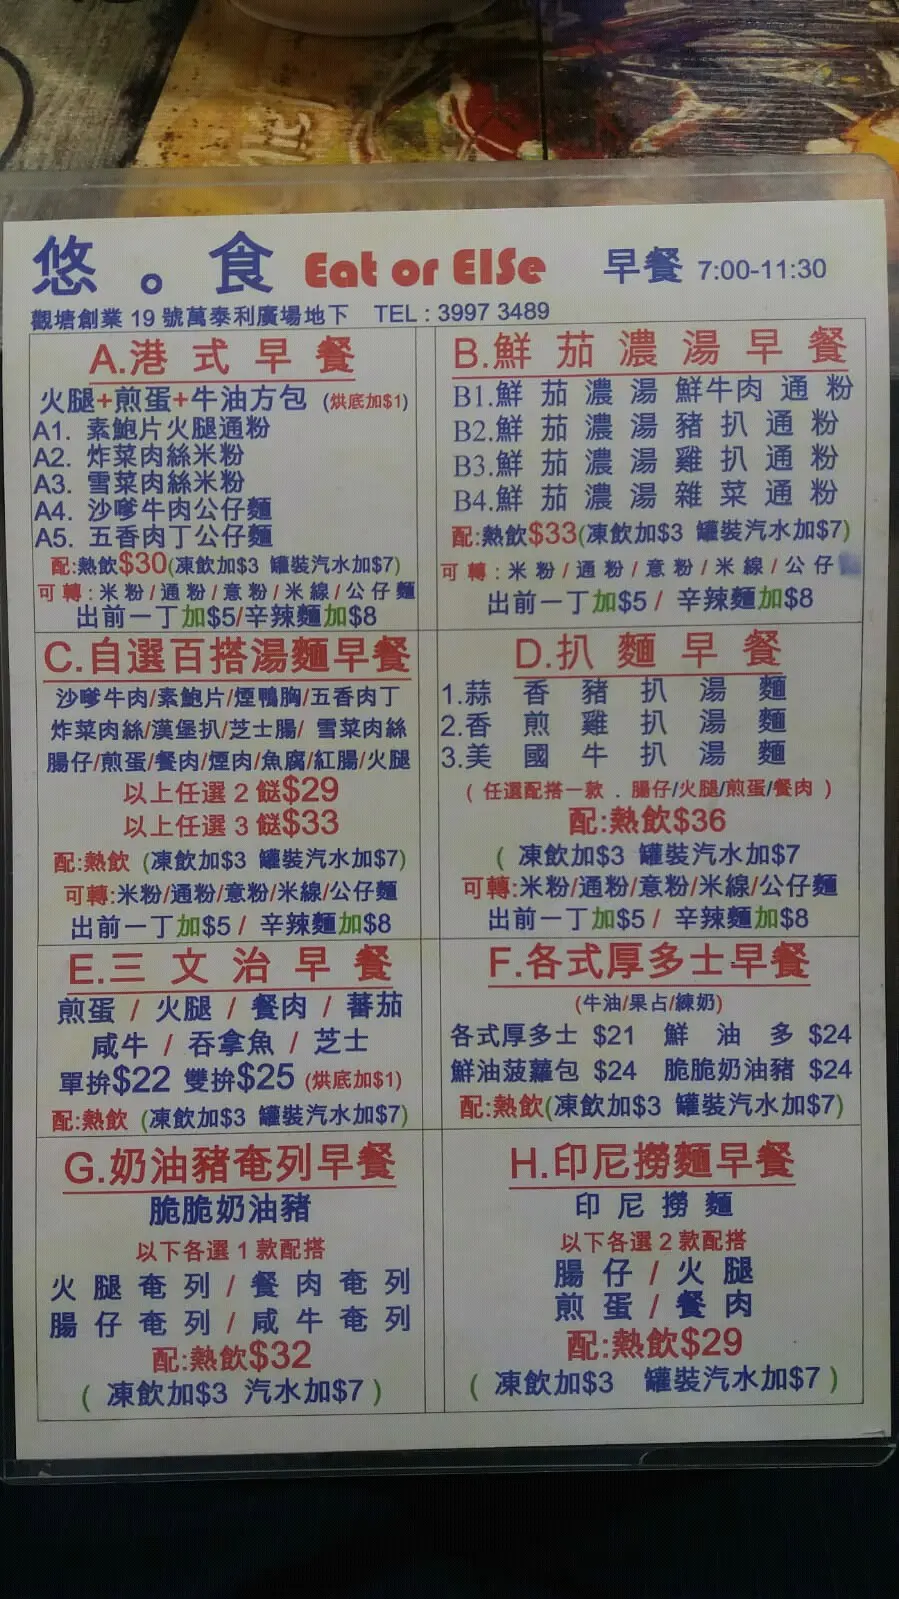 悠。食 Eat or ElSe 早餐 7:00-11:30
觀塘創業 19 號萬泰利廣場地下 TEL : 3997 3489
A.港式早餐
火腿+煎蛋+牛油方包 (烘底加$1)
A1. 素鮑片火腿通粉
A2. 炸菜肉絲米粉
A3. 雪菜肉絲米粉
A4. 沙嗲牛肉公仔麵
A5. 五香肉丁公仔麵
配:熱飲$30(凍飲加$3 罐裝汽水加$7)
可轉:米粉/通粉/意粉/米線/公仔麵
出前一丁加$5/辛辣麵加$8
B.鮮茄濃湯早餐
B1.鮮茄濃湯鮮牛肉通粉
B2.鮮茄濃湯豬扒通粉
B3.鮮茄濃湯雞扒通粉
B4.鮮茄濃湯雜菜通粉
配:熱飲$33(凍飲加$3 罐裝汽水加$7)
可轉:米粉/通粉/意粉/米線/公仔
出前一丁加$5/ 辛辣麵加$8
C.自選百搭湯麵早餐
沙嗲牛肉/素鮑片/煙鴨胸/五香肉丁
炸菜肉絲/漢堡扒/芝士腸/ 雪菜肉絲
腸仔/煎蛋/餐肉/煙肉/魚腐/紅腸/火腿
以上任選 2 餸$29
以上任選 3 餸$33
配:熱飲 (凍飲加$3 罐裝汽水加$7)
可轉:米粉/通粉/意粉/米線/公仔麵
出前一丁加$5/ 辛辣麵加$8
D.扒麵早餐
1.蒜香豬扒湯麵
2.香煎雞扒湯麵
3.美國牛扒湯麵
( 任選配搭一款 . 腸仔/火腿/煎蛋/餐肉 )
配:熱飲$36
( 凍飲加$3 罐裝汽水加$7
可轉:米粉/通粉/意粉/米線/公仔麵
出前一丁加$5/ 辛辣麵加$8
E.三文治早餐
煎蛋 / 火腿 / 餐肉 / 蕃茄
咸牛 / 吞拿魚 / 芝士
單拚$22 雙拚$25 (烘底加$1)
配:熱飲 (凍飲加$3 罐裝汽水加$7)
F.各式厚多士早餐
(牛油/果占/練奶)
各式厚多士 $21 鮮油多 $24
鮮油菠蘿包 $24 脆脆奶油豬 $24
配:熱飲(凍飲加$3 罐裝汽水加$7)
G.奶油豬奄列早餐
脆脆奶油豬
以下各選 1 款配搭
火腿奄列 / 餐肉奄列
腸仔奄列 / 咸牛奄列
配:熱飲$32
( 凍飲加$3 汽水加$7 )
H.印尼撈麵早餐
印尼撈麵
以下各選 2 款配搭
腸仔 / 火腿
煎蛋 / 餐肉
配:熱飲$29
( 凍飲加$3 罐裝汽水加$7 )